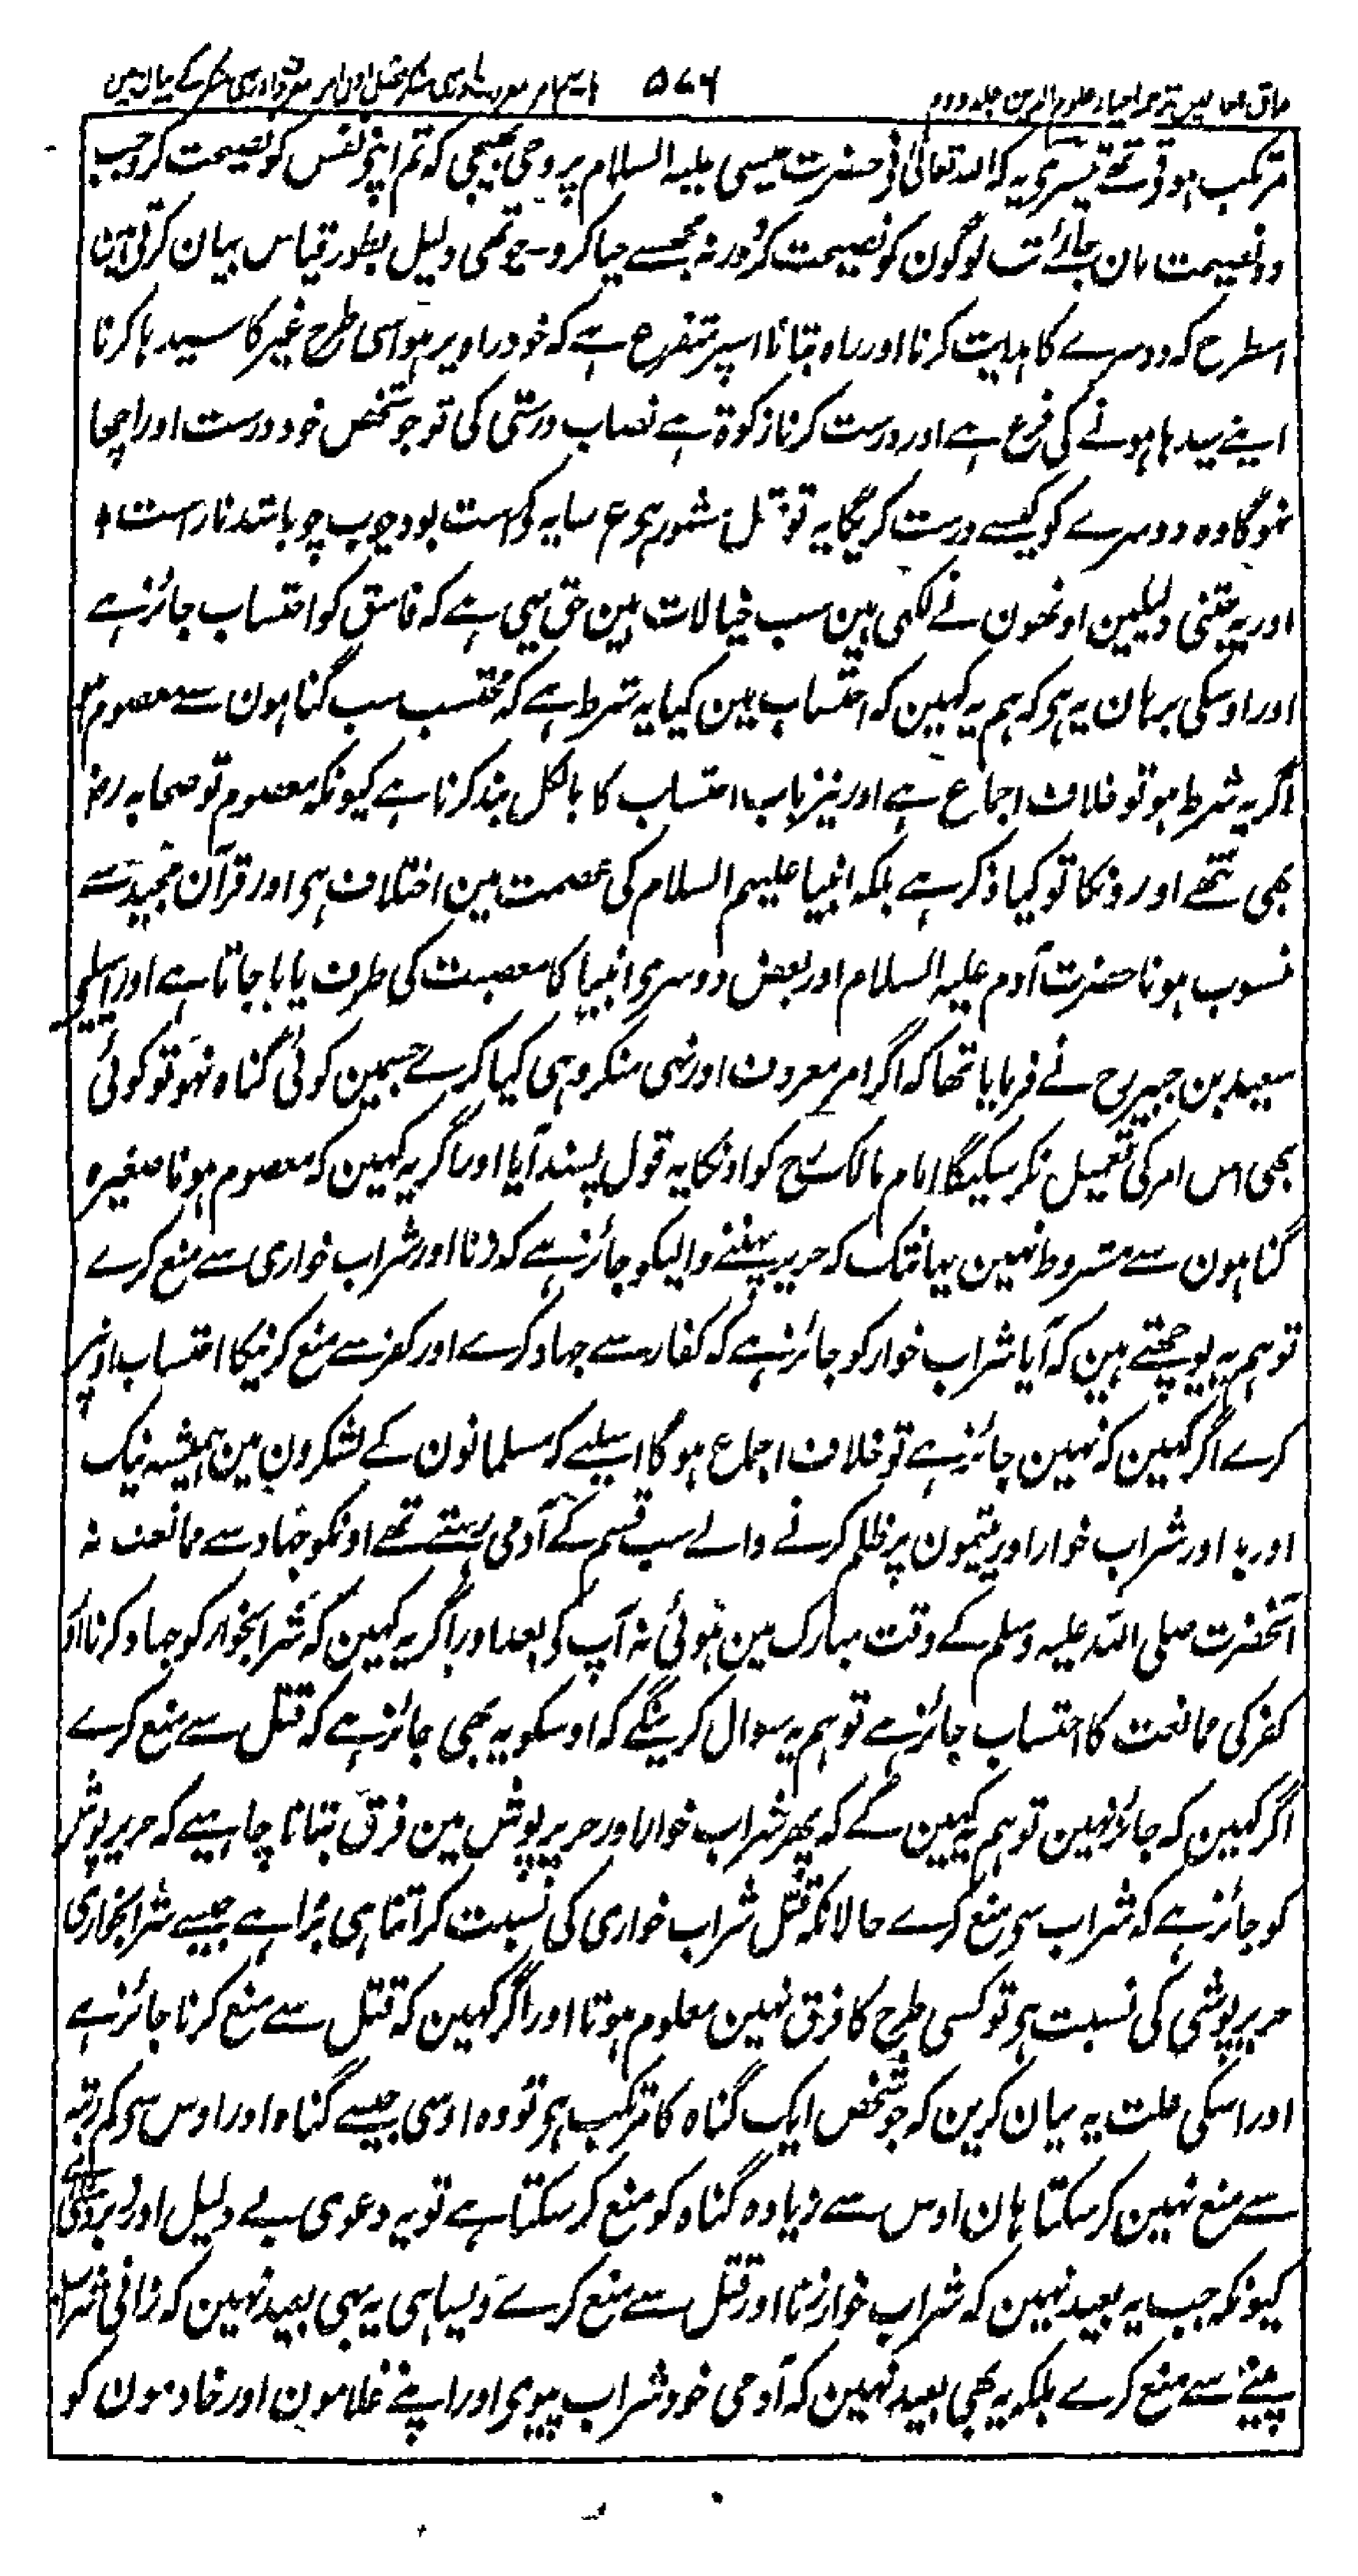 مذاق العارفین ترجمہ احیاء علوم الدین جلد دوم ۵۷۶
مرتکب ہوتے تھے تیسری یہ کہ اللہ تعالیٰ نے حضرت عیسیٰ علیہ السلام پر وحی بھیجی کہ تم اپنے نفس کو نصیحت کرو جب
وہ نصیحت مان جائے تب لوگون کو نصیحت کرو ورنہ مجھسے حیا کرو۔ چوتھی دلیل بطور قیاس بیان کرتے ہین
اسطرح کہ دوسرے کا ہدایت کرنا اور راہ بتانا اسپر متفرع ہے کہ خود راہ پر ہو اسی طرح غیر کا سیدہا کرنا
اپنے سیدہا ہونے کی فرع ہے اور درست کرنا زکوۃ ہے نصاب درستی کی تو جو شخص خود درست اور اچھا
نہوگا وہ دوسرے کو کیسے درست کریگا یہ تو مثل مشہور ہی ع سایہ کی است بود چوب چو باشد ناراست ٭
اور یہ جتنی دلیلین اونھون نے لکھی ہین سب خیالات ہین حق یہی ہے کہ فاسق کو احتساب جائز ہے
اور اوسکی برہان یہ ہی کہ ہم یہ کہین کہ احتساب مین کیا یہ شرط ہے کہ محتسب سب گناہون سے معصوم ہو
اگر یہ شرط ہو تو خلاف اجماع ہے اور نیز باب احتساب کا بالکل بند کرنا ہے کیونکہ معصوم تو صحابہ رض
بھی نتھے اورونکا تو کیا ذکر ہے بلکہ انبیا علیہم السلام کی عصمت مین اختلاف ہی اور قرآن مجید سے
منسوب ہونا حضرت آدم علیہ السلام اور بعض دوسری انبیا کا معصیت کی طرف پایا جاتا ہے اور اسیلیے
سعید بن جبیر رح نے فرمایا تھا کہ اگر امر معروف اور نہی منکر وہی کیا کرے جسمین کوئی گناہ نہو تو کوئی
بھی اس امر کی تعمیل نکر سکیگا امام مالک رح کو اونکا یہ قول پسند آیا اور اگر یہ کہین کہ معصوم ہونا صغیرہ
گناہون سے مشروط نہین یہانتک کہ حریر پہننے والیکو جائز ہے کہ زنا اور شراب خواری سے منع کرے
تو ہم یہ پوچھتے ہین کہ آیا شراب خوار کو جائز ہے کہ کفار سے جہاد کرے اور کفر سے منع کرنیکا احتساب اونپر
کرے اگر کہین کہ نہین جائز ہے تو خلاف اجماع ہوگا اسیلیے کہ مسلمانون کے لشکرون مین ہمیشہ نیک
اور بد اور شراب خوار اور یتیمون پر ظلم کرنے والے سب قسم کے آدمی رہتے تھے اونکو جہاد سے ممانعت نہ
آنحضرت صلی اللہ علیہ وسلم کے وقت مبارک مین ہوئی نہ آپ کی بعد اور اگر یہ کہین کہ شرابخوار کو جہاد کرنا اور
کفر کی ممانعت کا احتساب جائز ہے تو ہم یہ سوال کرینگے کہ اوسکو یہ بھی جائز ہے کہ قتل سے منع کرے
اگر کہین کہ جائز نہین تو ہم یہ کہین گے کہ پھر شراب خوار اور حریر پوش مین فرق بتانا چاہیے کہ حریر پوش
کو جائز ہے کہ شراب سی منع کرے حالانکہ قتل شراب خواری کی نسبت کر اتنا ہی بُرا ہے جیسے شرابخواری
حریر پوشی کی نسبت ہی تو کسی طرح کا فرق نہین معلوم ہوتا اور اگر کہین کہ قتل سے منع کرنا جائز ہے
اور اسکی علت یہ بیان کرین کہ جو شخص ایک گناہ کا مرتکب ہی تو وہ اوسی جیسے گناہ اور اوس سی کم رتبہ
سے منع نہین کر سکتا ہان اوس سے زیادہ گناہ کو منع کر سکتا ہے تو یہ دعوی بے دلیل اور زبردستی ہے
کیونکہ جب یہ بعید نہین کہ شراب خوار زنا اور قتل سے منع کرے ویسا ہی یہ بہی بعید نہین کہ زانی شراب
پینے سے منع کرے بلکہ یہ بھی بعید نہین کہ آدمی خود شراب پیوی اور اپنے غلامون اور خادمون کو